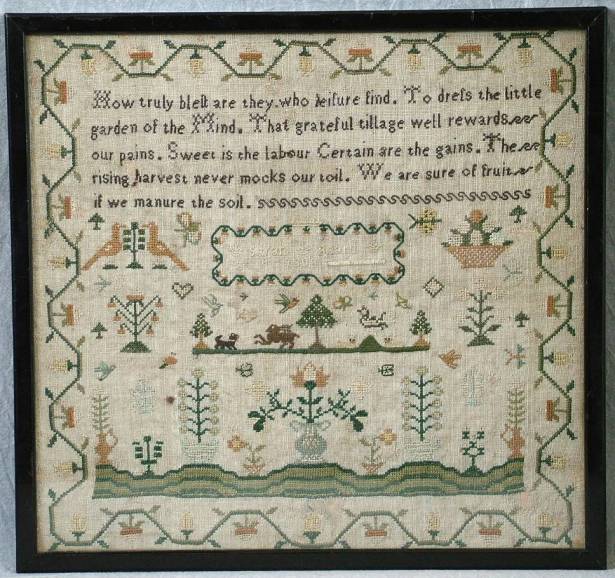 How truly bleſt are they who leiſure find. To dreſs the little
garden of the Mind. That grateful tillage well rewards
our pains. Sweet is the labour Certain are the gains. The
rising harvest never mocks our toil. We are sure of fruit
if we manure the soil.